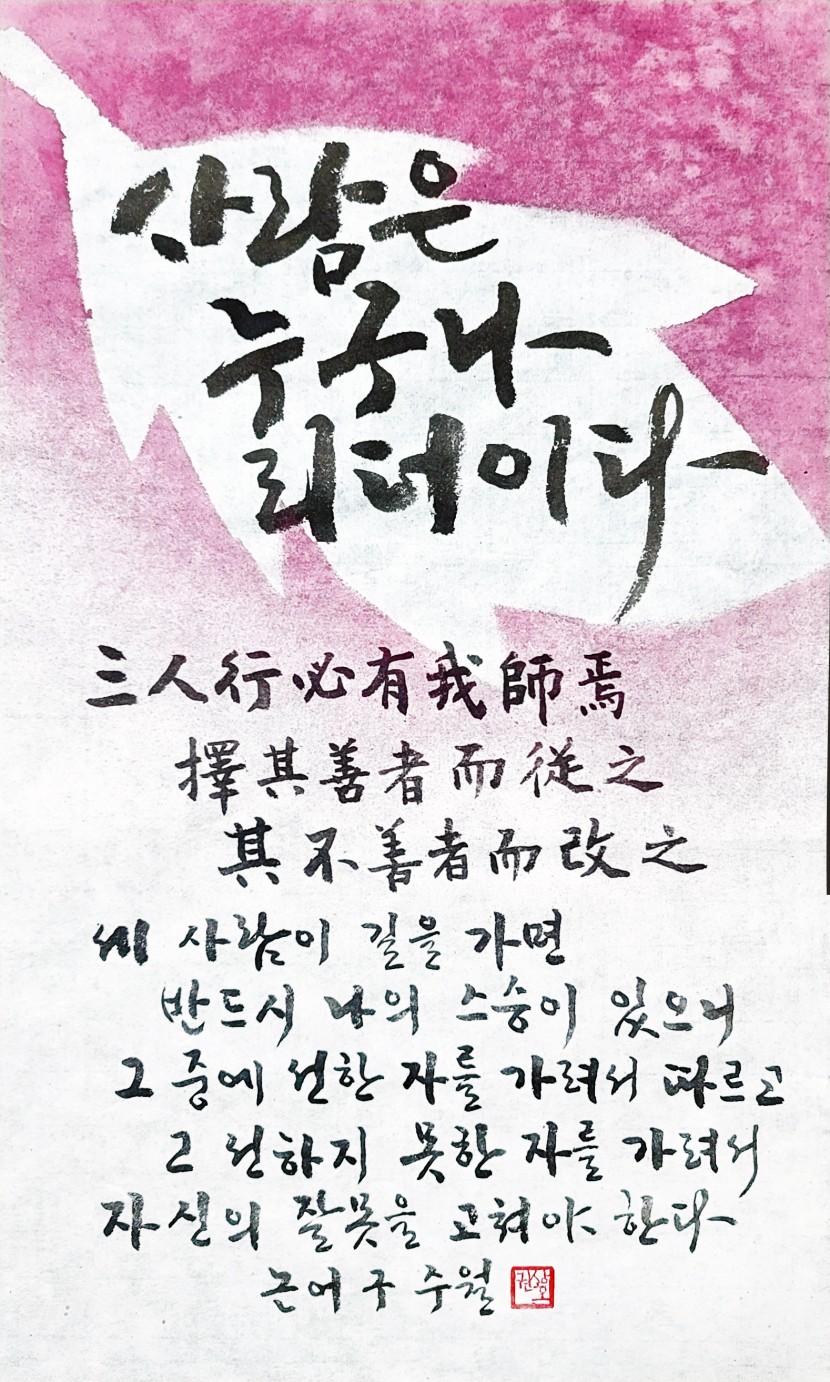 사람은
누구나
리더이다
三人行必有我師焉
擇其善者而從之
其不善者而改之
세 사람이 길을 가면
반드시 나의 스승이 있으니
그 중에 선한 자를 가려서 따르고
그 선하지 못한 자를 가려서
자신의 잘못을 고쳐야 한다
논어구 수월